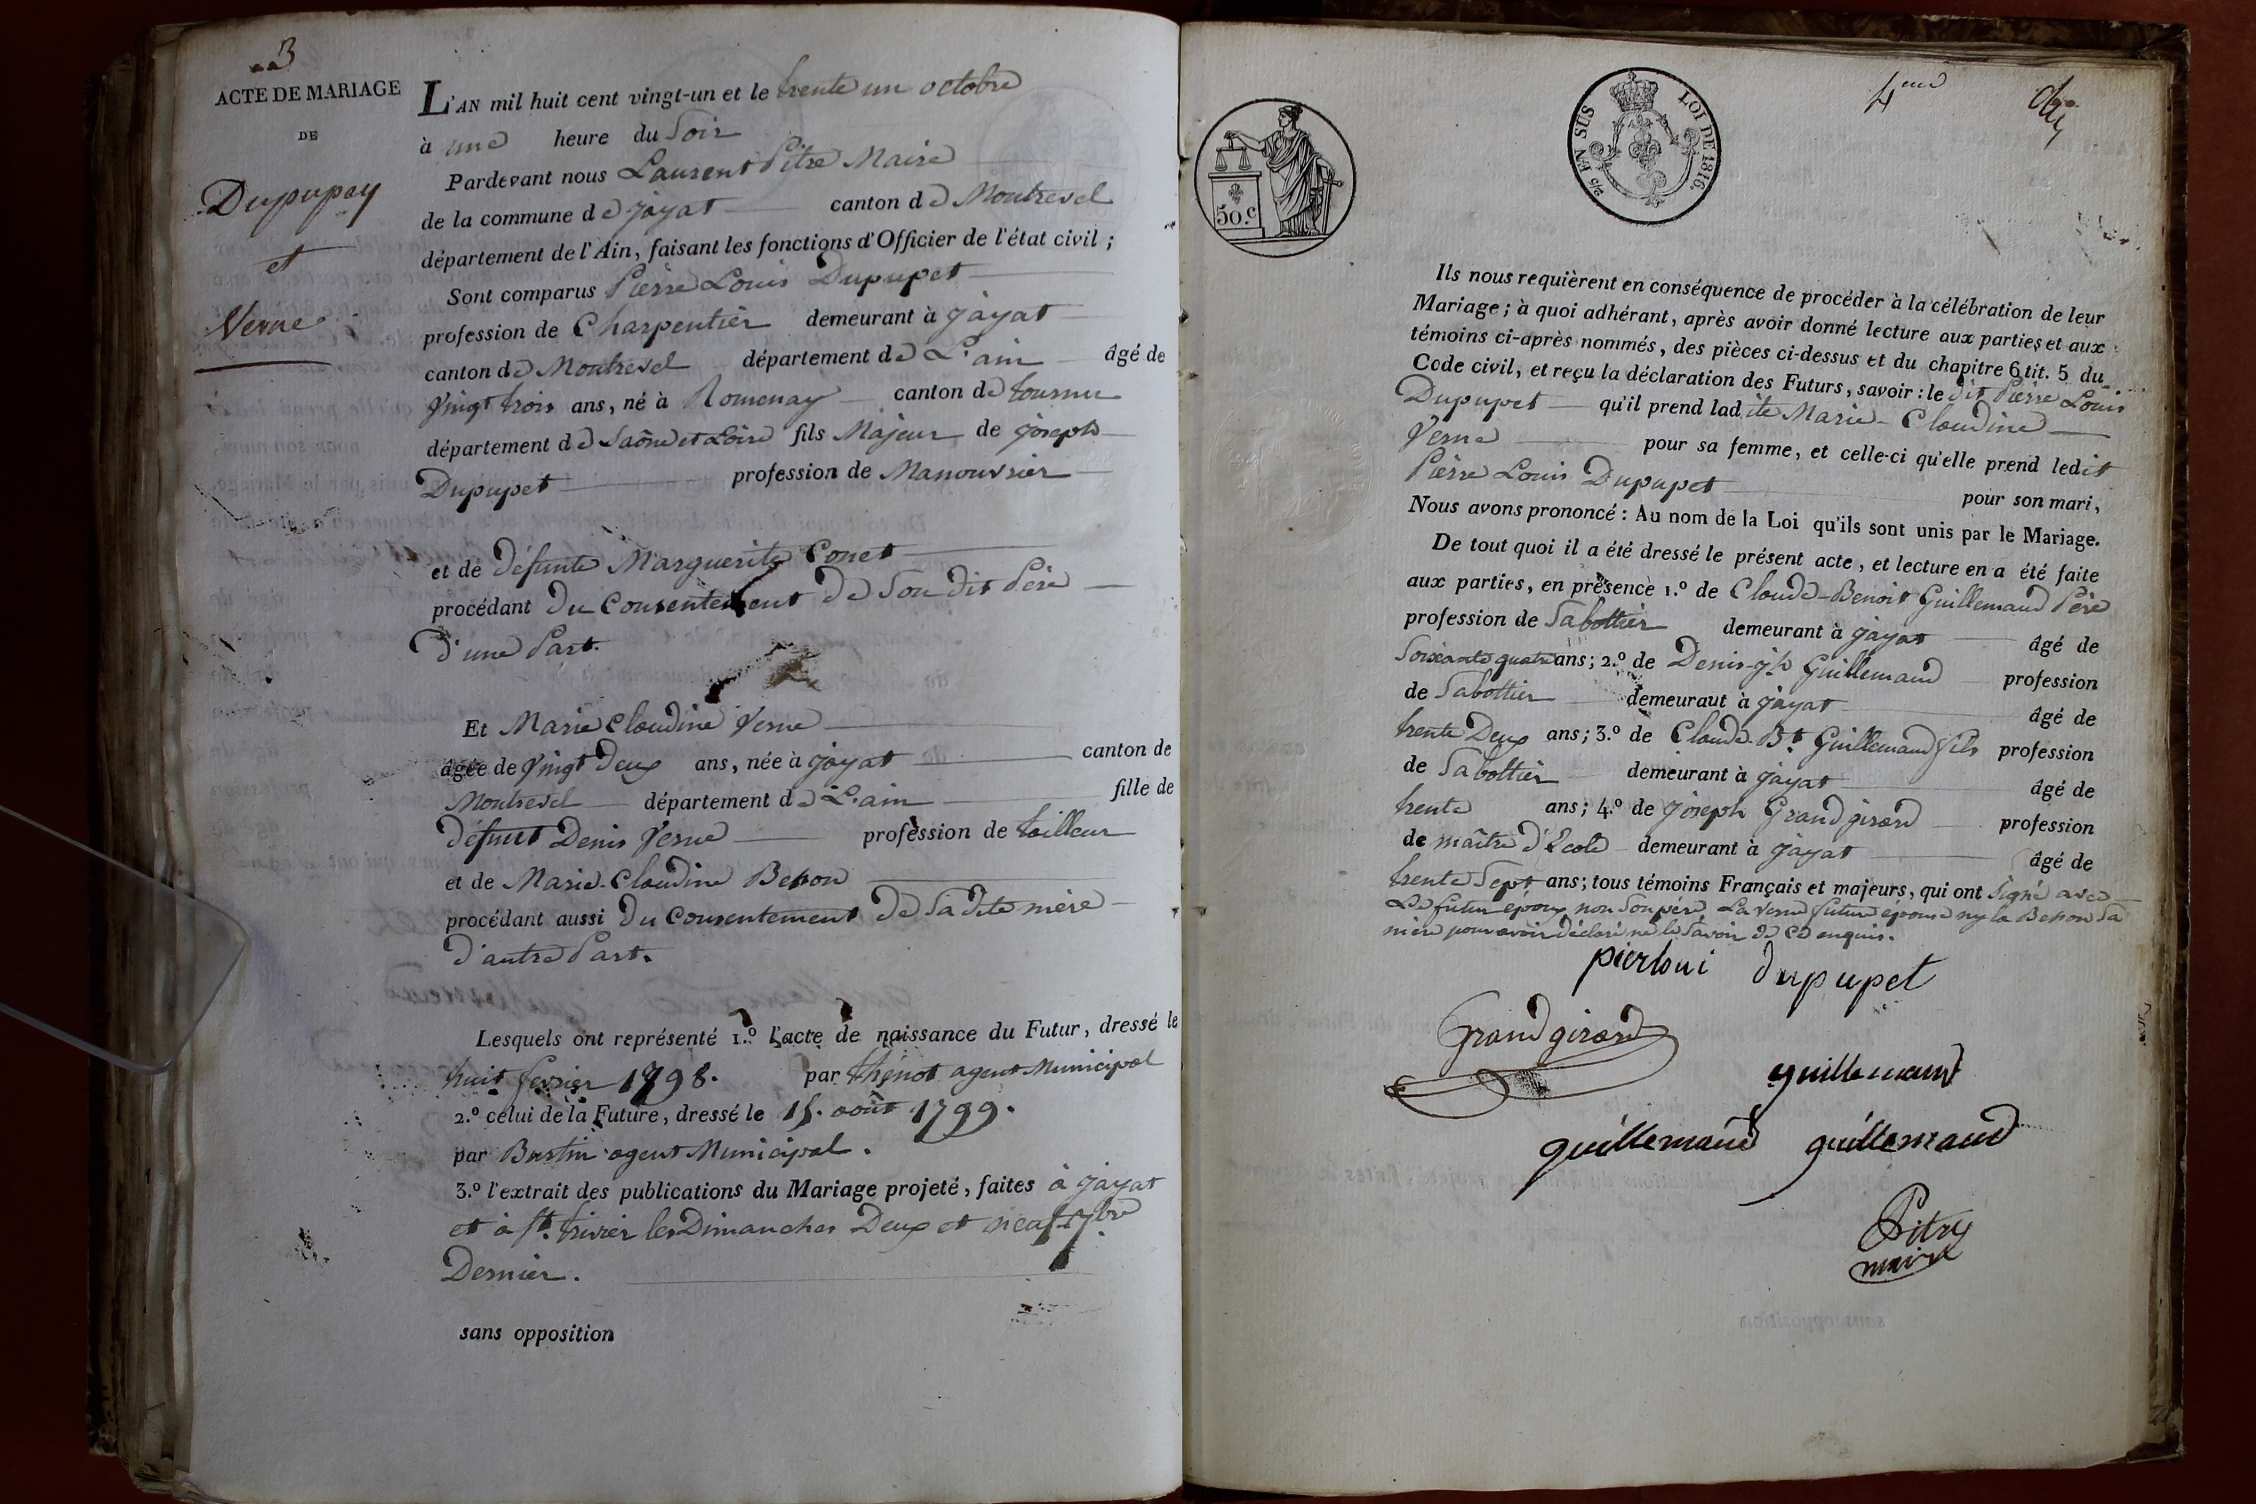 3
ACTE DE MARIAGE
DE
Dupupey
et
Verne
L'AN mil huit cent vingt-un et le trente un octobre
à une heure du Soir
Pardevant nous Laurent Pitre Maire
de la commune de jayat canton de Montrevel
département de l'Ain, faisant les fonctions d'Officier de l'état civil ;
Sont comparus Pierre Louis Dupupet
profession de Charpentier demeurant à jayat
canton de Montrevel département de L'ain âgé de
vingt trois ans, né à Romenay canton de tournu
département de Saône et Loire fils Majeur de joseph
Dupupet profession de Manouvrier
et de défunte Marguerite Conet
procédant du Consentement de Son dit Père
d'une Part.
Et Marie Claudine Verne
âgée de vingt deux ans, née à jayat canton de
Montrevel département de L'ain fille de
défunt Denis Verne profession de tailleur
et de Marie-Claudine Beson
procédant aussi du Consentement de Sa dite mère
d'autre Part.
Lesquels ont représenté 1.º l'acte de naissance du Futur, dressé le
huit fevrier 1798. par thenot agent Municipal
2.º celui de la Future, dressé le 15. août 1799.
par agent Municipal.
3.º l'extrait des publications du Mariage projeté, faites à jayat
et à St. trivier les Dimanches Deux et neuf 7bre
Dernier.
sans opposition
50.c
EN SUS LOI DE 1816.
4me
Ils nous requièrent en conséquence de procéder à la célébration de leur
Mariage ; à quoi adhérant, après avoir donné lecture aux parties et aux
témoins ci-après nommés, des pièces ci-dessus et du chapitre 6 tit. 5 du
Code civil, et reçu la déclaration des Futurs, savoir : le dit Pierre Louis
Dupupet qu'il prend ladite Marie-Claudine
Verne pour sa femme, et celle-ci qu'elle prend ledit
Pierre Louis Dupupet pour son mari,
Nous avons prononcé : Au nom de la Loi qu'ils sont unis par le Mariage.
De tout quoi il a été dressé le présent acte, et lecture en a été faite
aux parties, en présence 1.º de Claude-Benoit Guillemaud Père
profession de Sabottier demeurant à jayat âgé de
Soixante quatre ans ; 2.º de Denis-jh Guillemaud profession
de Sabottier demeuraut à jayat âgé de
trente Deux ans ; 3.º de Claude-Bt Guillemaud fils profession
de Sabottier demeurant à jayat âgé de
trente ans ; 4.º de joseph Grandgirard profession
de maître d'Ecole demeurant à jayat âgé de
trente Sept ans ; tous témoins Français et majeurs, qui ont Signé avec
Le futur époux non Son père, La Verne future épouse ny la Beson Sa
mère pour avoir déclaré ne le Savoir de ce enquis.
pierloui dupupet
Grandgirard
guillemaud
guillemaud guillemaud
Pitre
maire